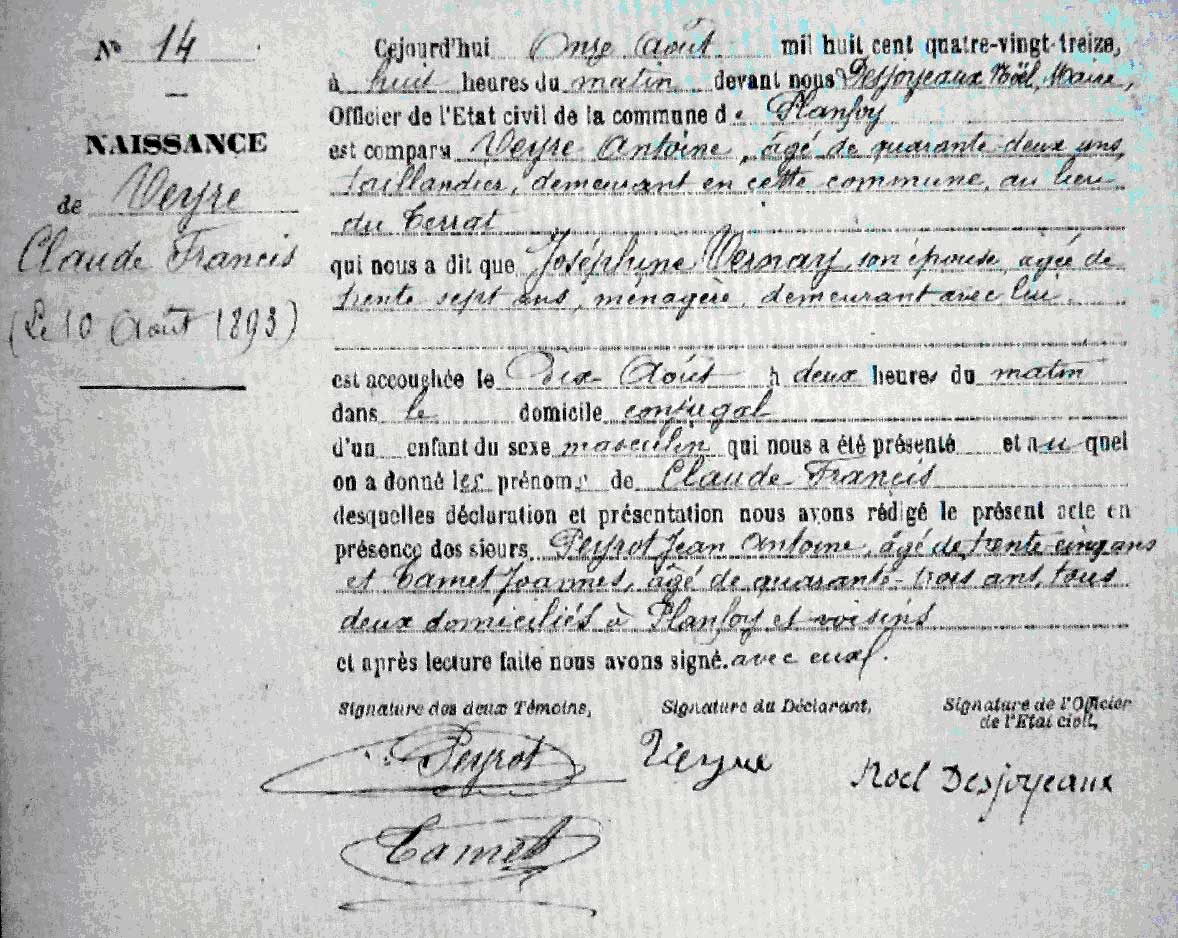 N° 14
NAISSANCE
de Veyre
Claude Francis
(Le 10 Août 1893)
Cejourd'hui Onze Août mil huit cent quatre-vingt-treize,
à huit heures du matin devant nous Desjoyeaux Noël, Maire,
Officier de l'Etat civil de la commune de Planfoy
est comparu Veyre Antoine, âgé de quarante deux ans,
taillandier, demeurant en cette commune, au lieu
du Terrat
qui nous a dit que Joséphine Vernay, son épouse, agée de
trente sept ans, ménagère, demeurant avec lui
est accouchée le Dix Août à deux heures du matin
dans le domicile conjugal
d'un enfant du sexe masculin qui nous a été présenté et auquel
on a donné les prénoms de Claude Francis
desquelles déclaration et présentation nous avons rédigé le présent acte en
présence des sieurs Peyrot Jean Antoine, âgé de trente-cinq ans
et Tamet Joannes, âgé de quarante-trois ans, tous
deux domiciliés à Planfoy et voisins
et après lecture faite nous avons signé avec eux.
Signature des deux Témoins,
Signature du Déclarant,
Signature de l'Officier
de l'Etat civil,
Peyrot
Veyre
Noel Desjoyeaux
Tamet